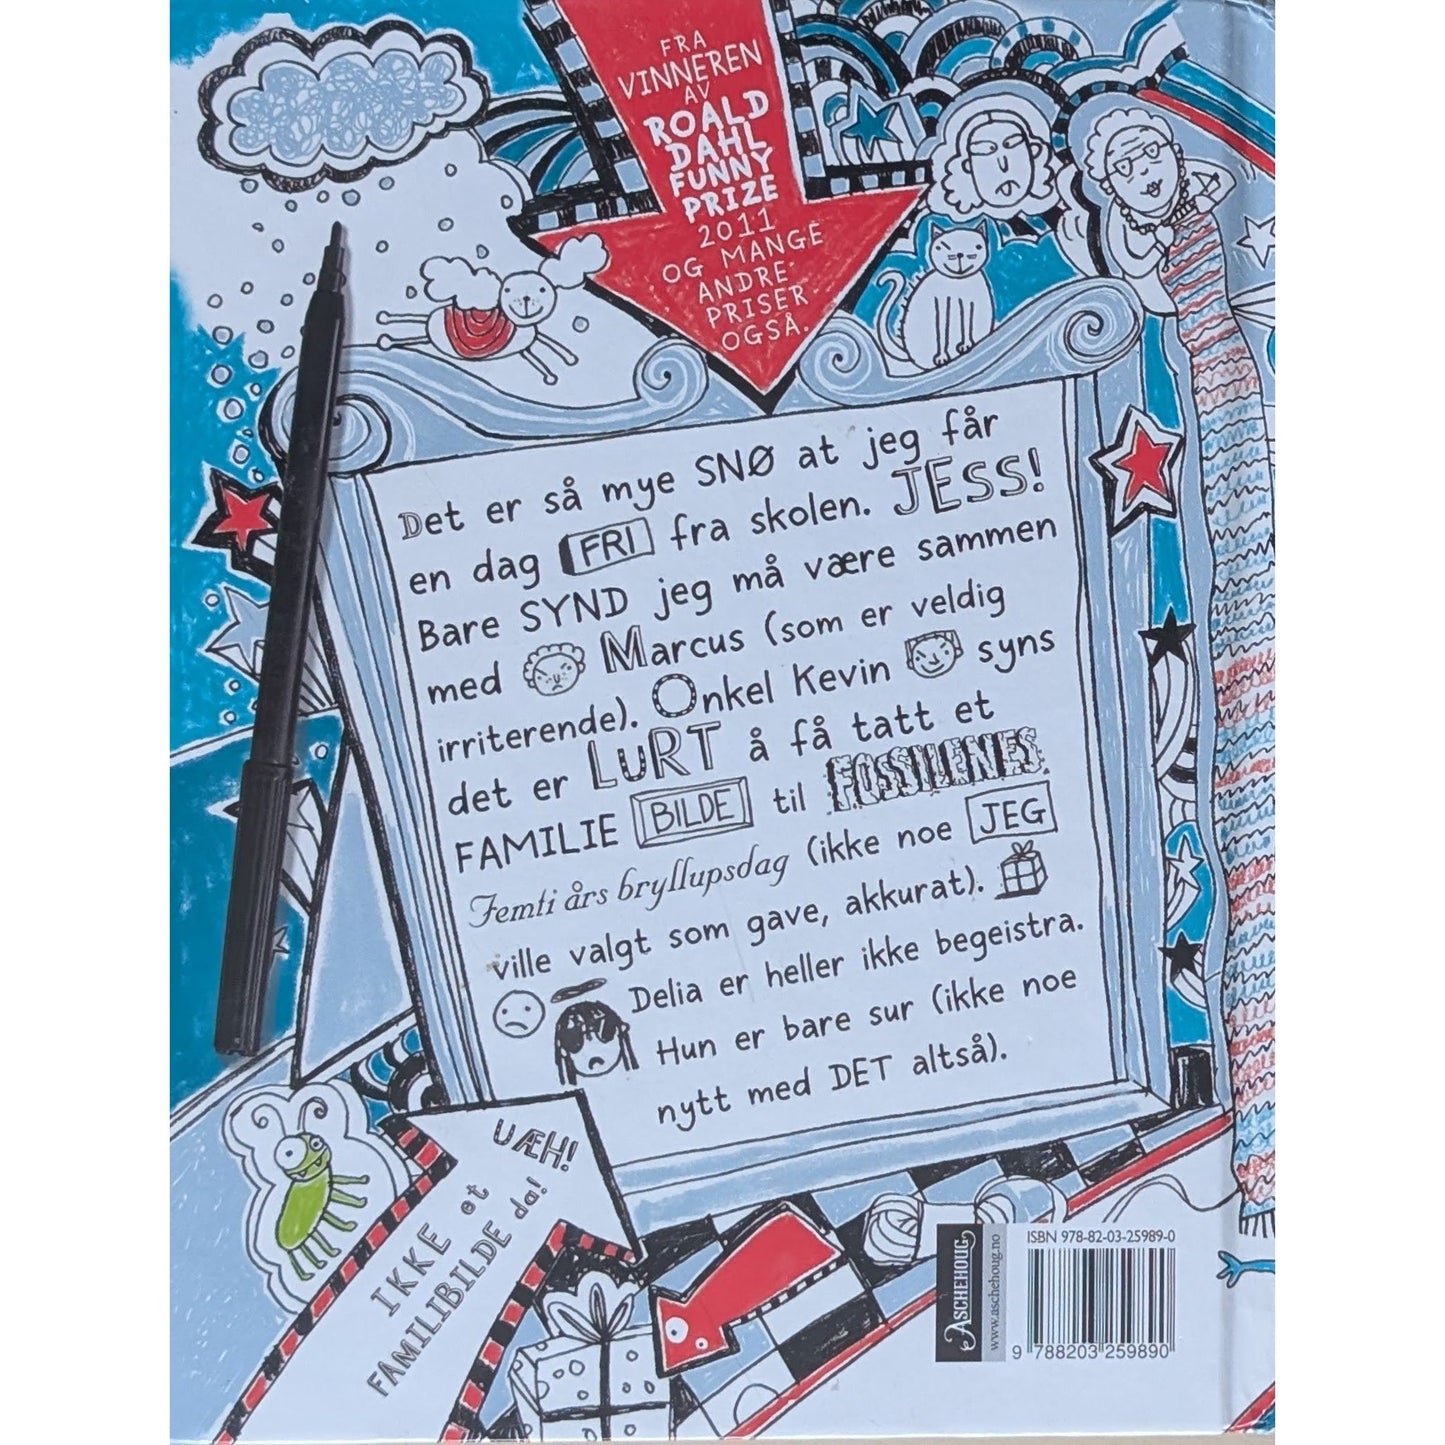 FRA
VINNEREN
AV
ROALD
DAHL
FUNNY
PRIZE
2011
OG MANGE
ANDRE
PRISER
OGSÅ.
Det er så mye SNØ at jeg får
en dag FRI fra skolen. JESS!
Bare SYND jeg må være sammen
med Marcus (som er veldig
irriterende). Onkel Kevin syns
det er LuRT å få tatt et
FAMILIE BILDE til FOSSILENES
Femti års bryllupsdag (ikke noe JEG
ville valgt som gave, akkurat).
Delia er heller ikke begeistra.
Hun er bare sur (ikke noe
nytt med DET altså).
UÆH!
IKKE et
FAMILIBILDE da!
ASCHEHOUG
www.aschehoug.no
ISBN 978-82-03-25989-0
9 788203 259890